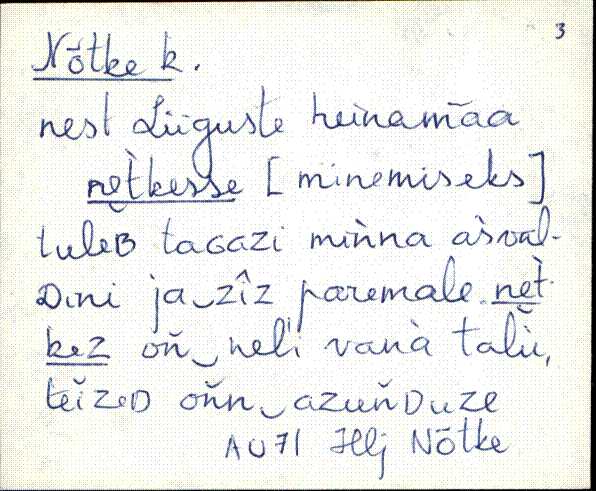 3
Nõtke k.
nest Liiguste heinamāa
nè̮tkesse [minemiseks]
tuleB taGazi miǹna aśval-
Dini ja‿zîz paremale. nè̮t-
kez oň‿neli vanà talù,
teǐzeD oňn‿azuňDuze
AU71 Hlj Nõtke